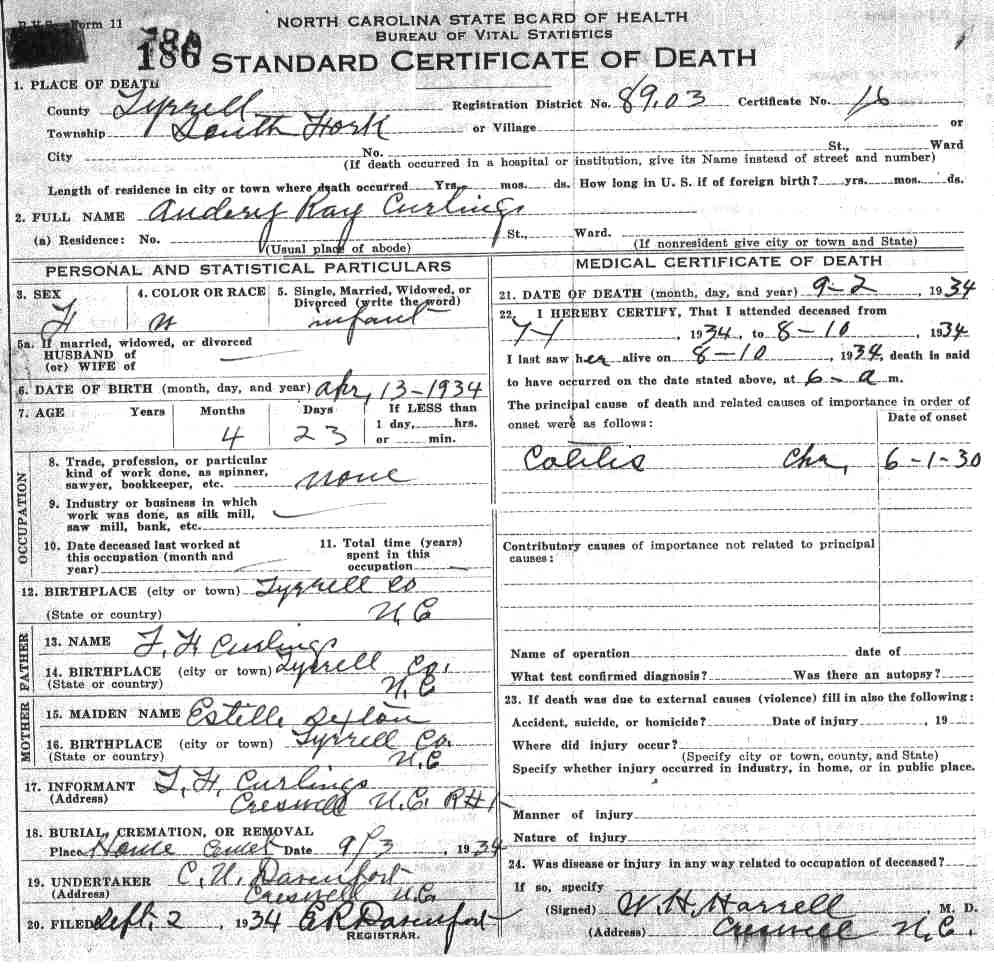 Form 11
NORTH CAROLINA STATE BOARD OF HEALTH
BUREAU OF VITAL STATISTICS
186 STANDARD CERTIFICATE OF DEATH
1. PLACE OF DEATH
County Tyrrell Registration District No. 89.03 Certificate No. 16
Township South Fork or Village or
City No. St., Ward
(If death occurred in a hospital or institution, give its Name instead of street and number)
Length of residence in city or town where death occurred Yrs. mos. ds. How long in U. S. if of foreign birth? yrs. mos. ds.
2. FULL NAME Audery Ray Curlings
(a) Residence: No. St., Ward.
(Usual place of abode) (If nonresident give city or town and State)
PERSONAL AND STATISTICAL PARTICULARS
3. SEX 4. COLOR OR RACE 5. Single, Married, Widowed, or
Divorced (write the word)
F W infant
5a. If married, widowed, or divorced
HUSBAND of
(or) WIFE of
6. DATE OF BIRTH (month, day, and year) Apr, 13-1934
7. AGE Years Months Days If LESS than
1 day, hrs.
4 23 or min.
OCCUPATION
8. Trade, profession, or particular
kind of work done, as spinner,
sawyer, bookkeeper, etc. none
9. Industry or business in which
work was done, as silk mill,
saw mill, bank, etc.
10. Date deceased last worked at
this occupation (month and
year)
11. Total time (years)
spent in this
occupation
12. BIRTHPLACE (city or town) Tyrrell Co
(State or country) N C
FATHER
13. NAME F. H Curlings
14. BIRTHPLACE (city or town) Tyrrell Co.
(State or country) N. C
MOTHER
15. MAIDEN NAME Estille Sexton
16. BIRTHPLACE (city or town) Tyrrell Co.
(State or country) N.C
17. INFORMANT F. H. Curlings
(Address) Creswell N.C. R#1
18. BURIAL, CREMATION, OR REMOVAL
Place Home Cemet Date 9/3, 1934
19. UNDERTAKER C. U. Davenport
(Address) Creswell N.C.
20. FILED Sept. 2 1934 E R Davenport
REGISTRAR.
MEDICAL CERTIFICATE OF DEATH
21. DATE OF DEATH (month, day, and year) 9-2, 1934
22. I HEREBY CERTIFY, That I attended deceased from
7-1, 1934, to 8-10, 1934
I last saw her alive on 8-10, 1934, death is said
to have occurred on the date stated above, at 6-a m.
The principal cause of death and related causes of importance in order of
onset were as follows: Date of onset
Colitis Chr, 6-1-30
Contributory causes of importance not related to principal
causes:
Name of operation date of
What test confirmed diagnosis? Was there an autopsy?
23. If death was due to external causes (violence) fill in also the following:
Accident, suicide, or homicide? Date of injury , 19
Where did injury occur?
(Specify city or town, county, and State)
Specify whether injury occurred in industry, in home, or in public place.
Manner of injury
Nature of injury
24. Was disease or injury in any way related to occupation of deceased?
If so, specify
(Signed) W. H. Harrell, M. D.
(Address) Creswell N.C.